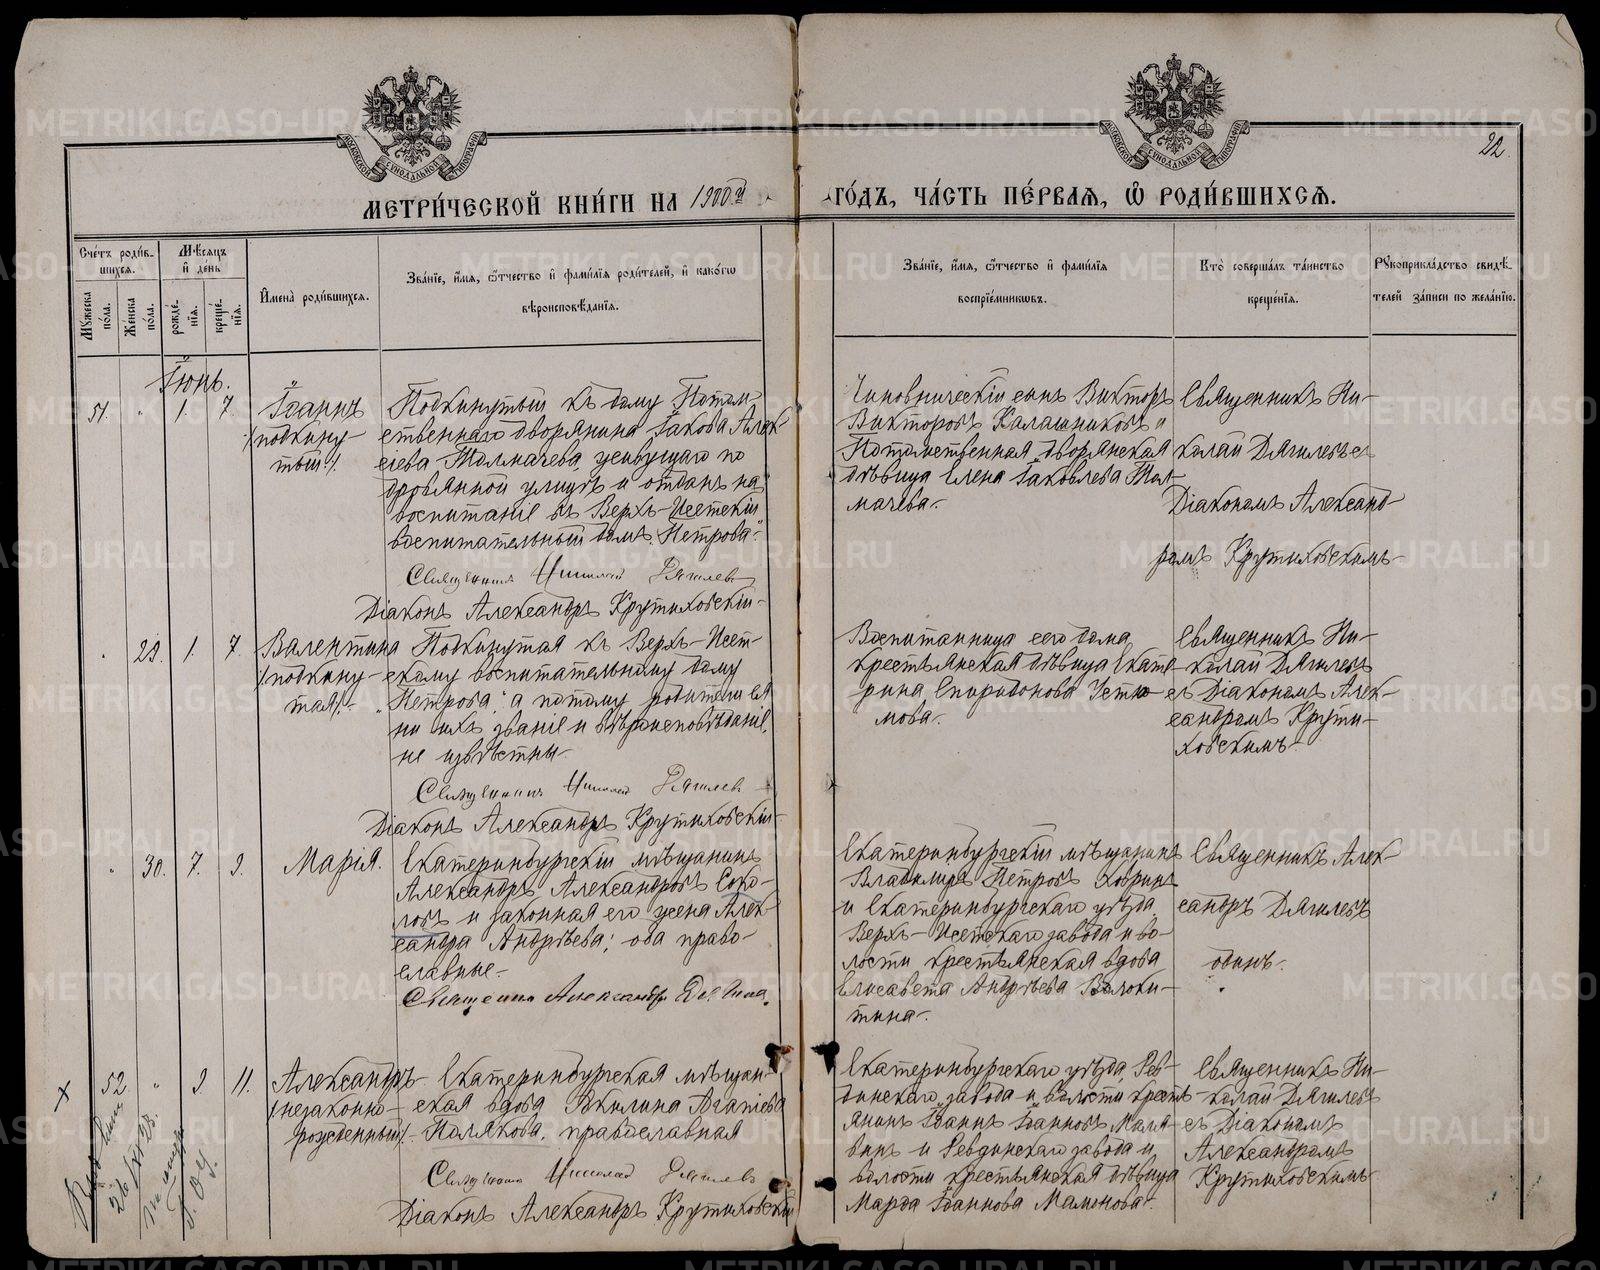 METRIKI.GASO-URAL.RU
МОСКОВСКОЙ СѴНОДАЛЬНОЙ ТИПОГРАФІИ
МОСКОВСКОЙ СѴНОДАЛЬНОЙ ТИПОГРАФІИ
22.
МЕТРИ́ЧЕСКОЙ КНИ́ГИ НА 1900й
ГО́ДЪ, ЧА́СТЬ ПЕ́РВАѦ, Ѡ҆ РОДИ́ВШИХСѦ.
Сче́тъ роди́вшихсѧ.
Мꙋжеска по́ла.
Же́нска по́ла.
Мѣ́сѧцъ и҆ день
рожде́нїѧ.
креще́нїѧ.
И҆мена̀ роди́вшихсѧ.
Зва́нїе, и҆́мѧ, ѻ҆́тчество и҆ фами́лїѧ роди́телей, и҆ како́гѡ
вѣроисповѣ́данїѧ.
Зва́нїе, и҆́мѧ, ѻ҆́тчество и҆ фами́лїѧ
воспрїе́мникѡвъ.
Кто̀ соверша́лъ та́инство
креще́нїѧ.
Рꙋкоприкла́дство свидѣ́-
телей за́писи по жела́нїю.
Іюнь.
51. " 1. 7.
Іоаннъ
/подкину-
тый/.
Подкинутый къ дому Потом-
ственнаго дворянина Іакова Алек-
сіева Толмачева, живущаго по
дровянной улицѣ и отданъ на
воспитаніе въ Верхъ-Исетскій
воспитательный домъ "Петрова".
Священникъ Николай Дягилевъ
Діаконъ Александръ Крутиховскій-
Чиновническій сынъ Викторъ
Викторовъ Калашниковъ и
Потомственная дворянская
дѣвица Елена Іаковлева Тол-
мачева.
Священникъ Ни-
колай Дягилевъ съ
Діакономъ Александ-
ромъ Крутиховскимъ-
29. 1. 7.
Валентина
/подкину-
тая/.
Подкинутая къ Верхъ-Исет-
скому воспитательному дому
"Петрова", а потому родители ея
ни ихъ званіе и вѣроисповѣданіе,
не извѣстны.
Священникъ Николай Дягилевъ
Діаконъ Александръ Крутиховскій-
Воспитанница сего дома,
крестьянская дѣвица Екате-
рина Спиридонова Устю-
мова.
Священникъ Ни-
колай Дягилевъ
съ Діакономъ Алек-
сандромъ Крути-
ховскимъ-
" 30. 7. 9.
Марія.
Екатеринбургскій мѣщанинъ
Александръ Александровъ Соко-
ловъ и законная его жена Алек-
сандра Андрѣева; оба право-
славные-
Священникъ Александръ Дягилевъ.
Екатеринбургскій мѣщанинъ
Владимиръ Петровъ
и Екатеринбургскаго уѣзда,
Верхъ-Исетскаго завода и во-
лости крестьянская вдова
Елисавета Андрѣева Волоки-
тина-.
Священникъ Алек-
сандръ Дягилевъ
одинъ.
52 " 9. 11.
Александръ
/незаконно-
рожденный/
Екатеринбургская мѣщан-
ская вдова Акилина Агапіева
Полякова, православная
Священникъ Николай Дягилевъ
Діаконъ Александръ Крутиховскій
Екатеринбургскаго уѣзда, Рев-
динскаго завода и волости кресть-
янинъ Іоаннъ Іоанновъ Маля-
винъ и Ревдинскаго завода и
волости крестьянская дѣвица
Марѳа Іоаннова Мамонова.
Священникъ Ни-
колай Дягилевъ
съ Діакономъ
Александромъ
Крутиховскимъ-
26/XI 28.